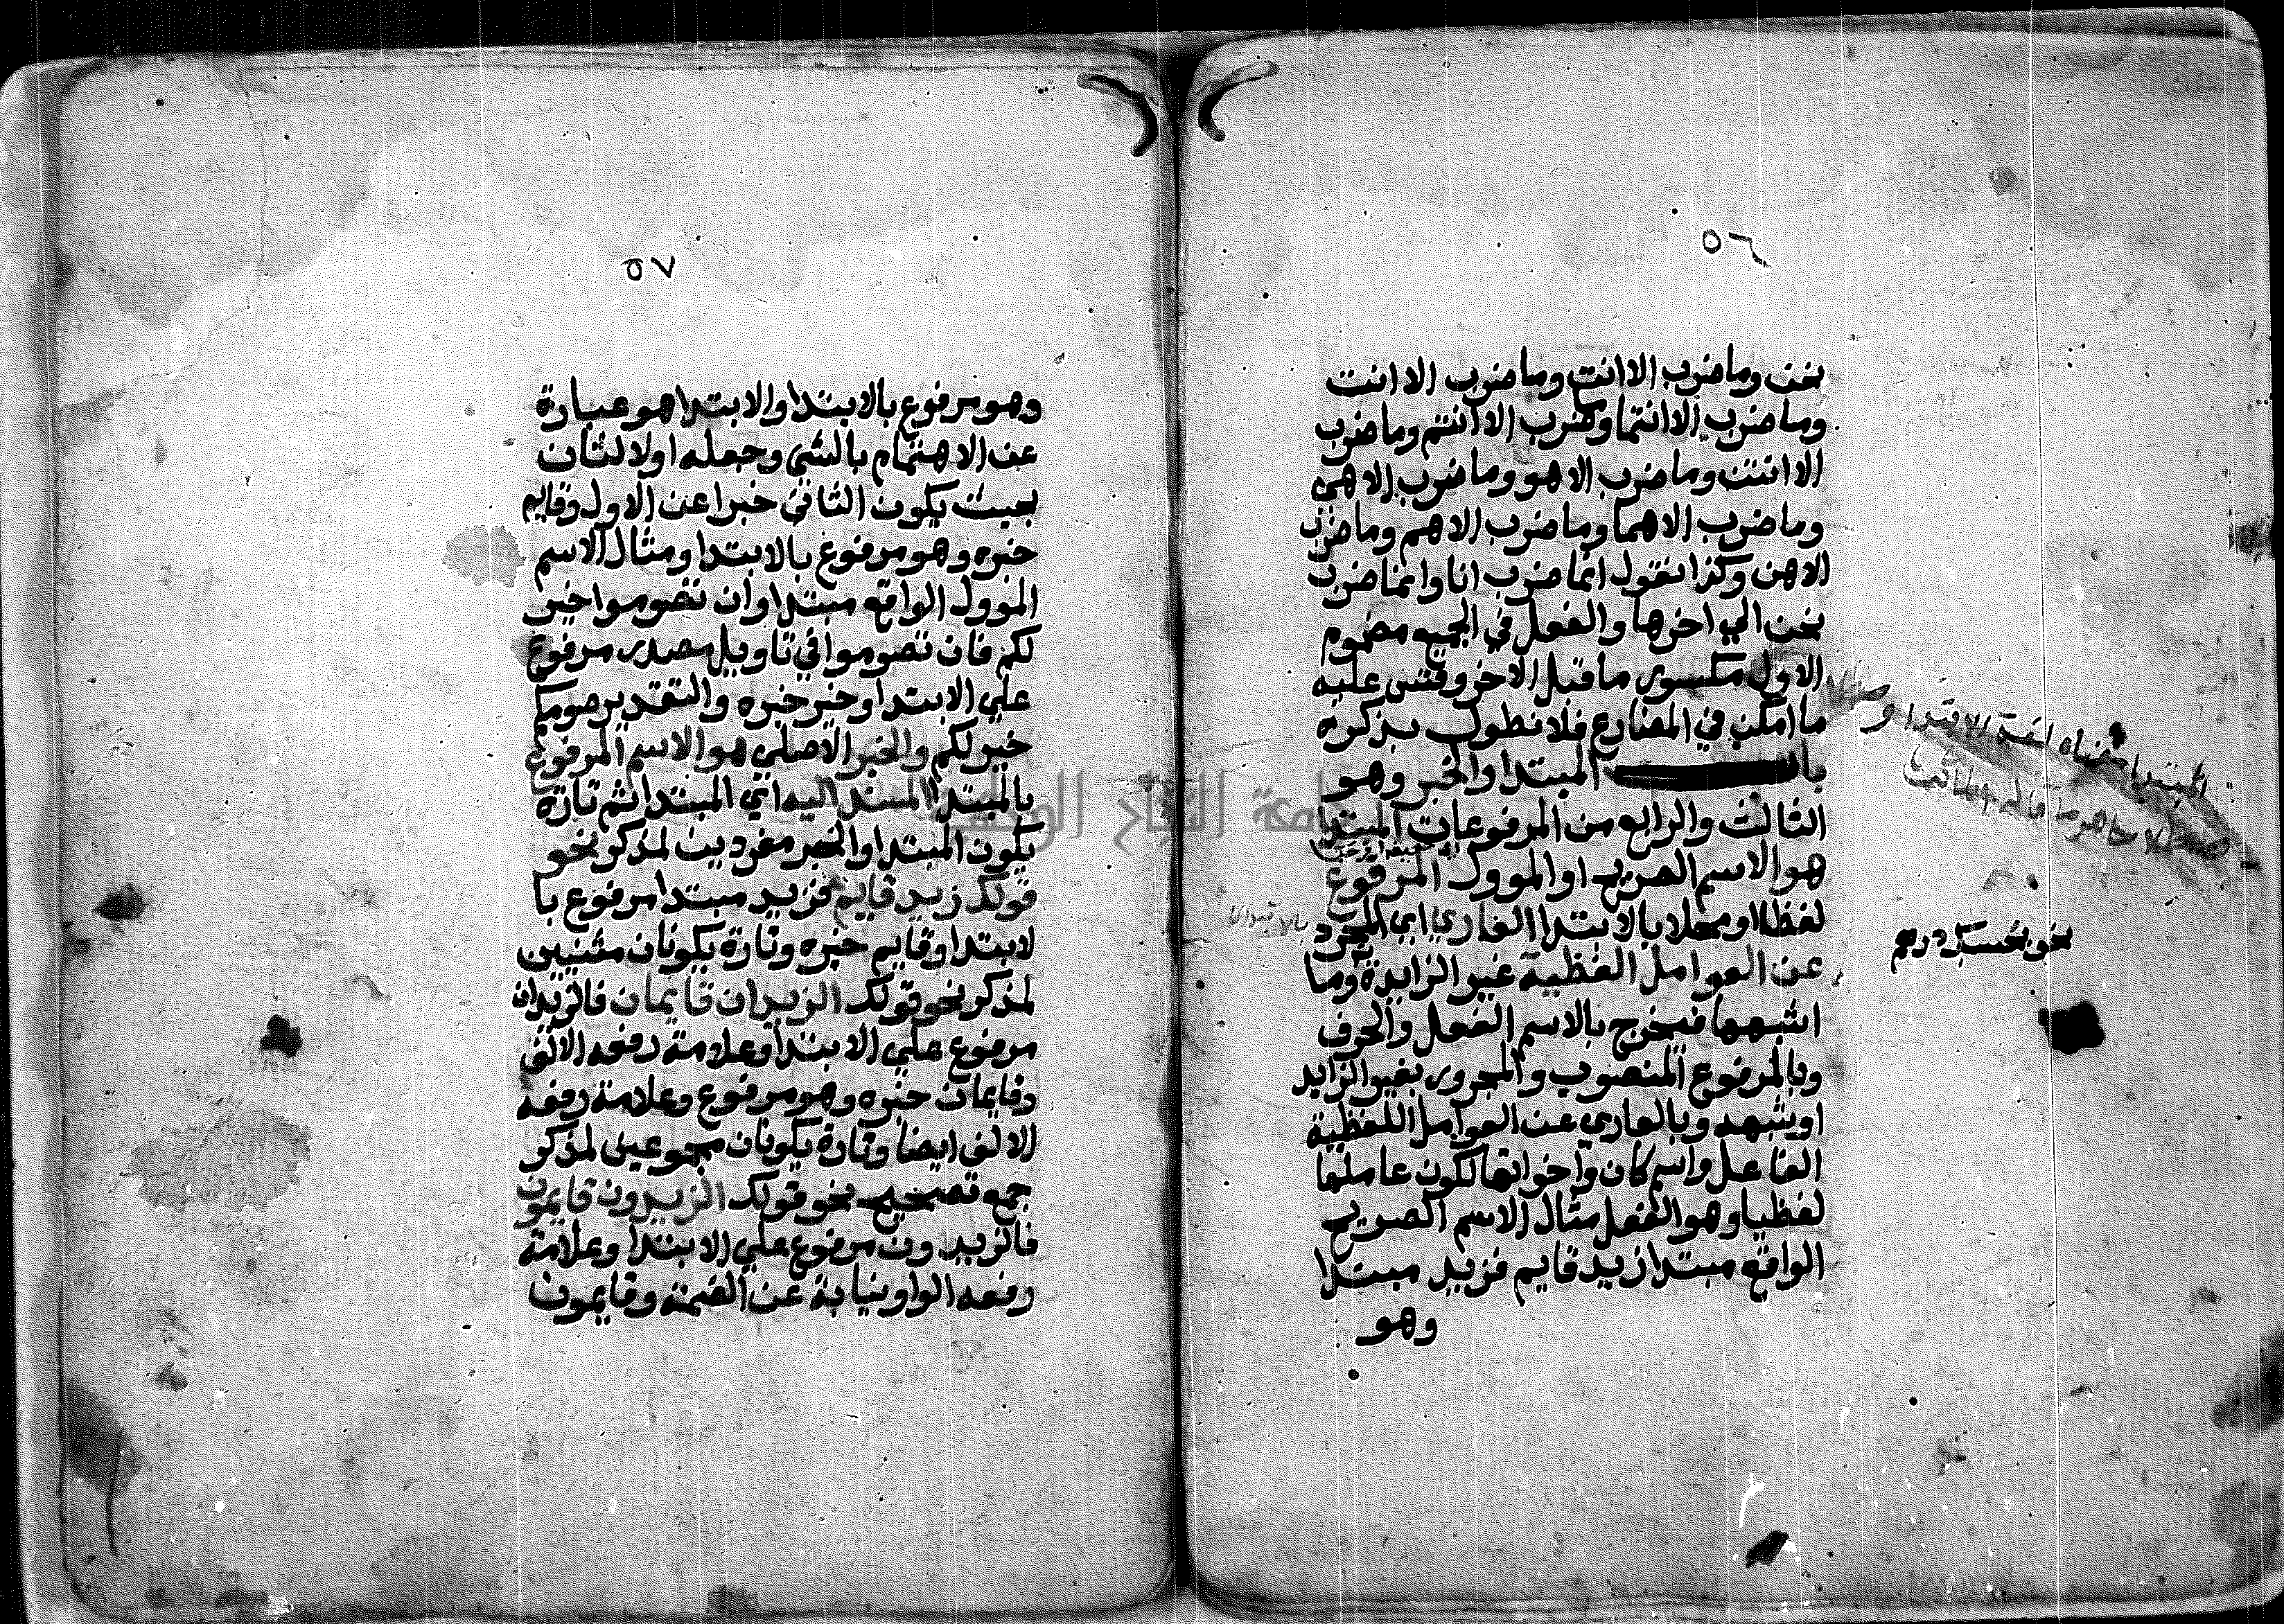 ٥٦
نحن وما ضرب الا انت وما ضرب الا انت
وما ضرب الا انتما وضرب الا انتم وما ضرب
الا انتن وما ضرب الا هو وما ضرب الا هي
وما ضرب الا هما وما ضرب الا هم وما ضرب
الا هن وكذا نقول انما ضرب انا وانما ضرب
نحن الي اخرها والفعل في الجميع مضموم
الاول مكسور ما قبل الاخر وقس عليه
ما امكن في المضارع فلا نطول بذكره
باب المبتدا والخبر وهو
الثالث والرابع من المرفوعات المبتدا
هو الاسم الصريح او الموول المرفوع
لفظا او محلا بالابتدا العاري اي المجرد
عن العوامل اللفظية غير الزايدة وما
اشبهها فيخرج بالاسم الفعل والحرف
وبالمرفوع المنصوب والمجرور بغير الزايد
او يشبهه وبالعاري عن العوامل اللفظية
الفاعل واسم كان واخواتها لكون عاملها
لفظيا وهو الفعل مثال الاسم الصريح
الواقع مبتدا زيد قايم فزيد مبتدا
وهو
نحو بحسبك درهم
٥٧
وهو مرفوع بالابتدا والابتدا هو عبارة
عن الاهتمام بالشي وجعله اولا لثان
بحيث يكون الثاني خبرا عن الاول وقايم
خبره وهو مرفوع بالابتدا ومثال الاسم
الموول الواقع مبتدا وان تصوموا خير
لكم فان تصوموا في تاويل مصدر مرفوع
علي الابتدا وخير خبره والتقدير صومكم
خير لكم والخبر الاصلي هو الاسم المرفوع
بالمبتدا المسند اليه اي المبتدا ثم تارة
يكون المبتدا والخبر مفردين لمذكر نحو
قولك زيد قايم فزيد مبتدا مرفوع با
لابتدا وقايم خبره وتارة يكونان مثنيين
لمذكر نحو قولك الزيدان قايمان فالزيدان
مرفوع علي الابتدا وعلامة رفعه الالف
وقايمان خبره وهو مرفوع وعلامة رفعه
الالف ايضا وتارة يكونان مجموعين لمذكر
جمع تصحيح نحو قولك الزيدون قايمون
فالزيدون مرفوع علي الابتدا وعلامة
رفعه الواو نيابة عن الضمة وقايمون